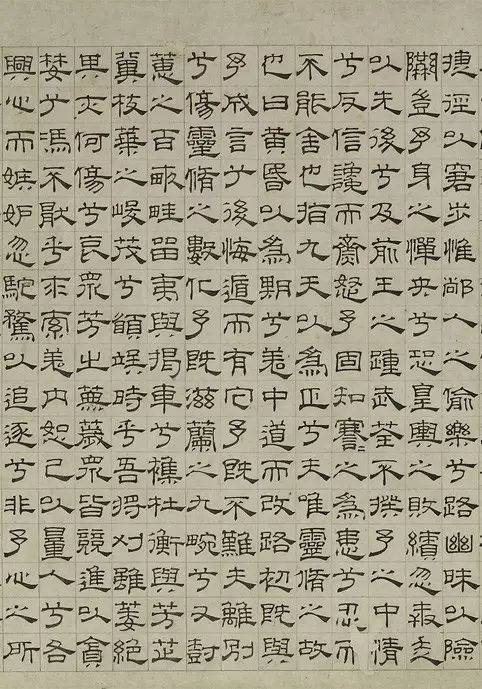 捷徑以窘步惟䣊人之偷樂兮路幽昧以險
隘豈予身之憚央兮恐皇輿之敗績忽奔走
以先後兮及前王之踵武荃不揆予之中情
兮反信讒而齌怒予固知謇々之為患兮忍而
不能舍也指九天以為正兮夫唯靈脩之故
也曰黃昏以為期兮羌中道而改路初既與
予成言兮後悔遁而有它予既不難夫離別
兮傷靈脩之數化予既滋蘭之九畹兮又樹
蕙之百畝畦留夷與揭車兮雜杜衡與芳芷
冀枝葉之峻茂兮願竢時乎吾將刈雖萎絕
其亦何傷兮哀眾芳之蕪薉眾皆競進以貪
婪兮馮不猒乎求索羌內恕己以量人兮各
興心而嫉妒忽馳騖以追逐兮非予心之所